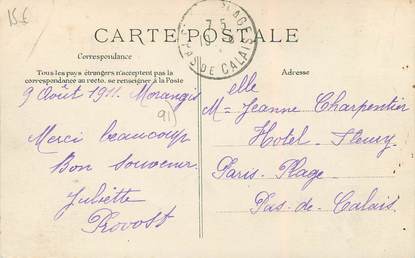 15€
CARTE POSTALE
PLAGE
7-5
PAS DE CALAIS
Correspondance
Tous les pays étrangers n'acceptent pas la
correspondance au recto. se renseigner à la Poste
Adresse
9 Août 1911. Morangis
91
Merci beaucoup
Bon souvenir.
Juliette
Provost
elle
M= Jeanne Charpentier
Hotel-Fleury
Paris-Plage
Pas-de-Calais.